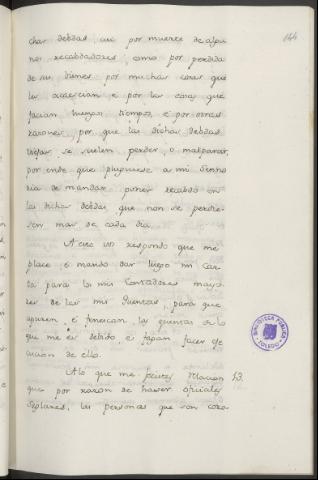 144
chas debdas, asi por muerte de algu-
nos recabdadores, como por perdida
de sus bienes, por muchas cosas que
les acaescian, e por las cosas que
facian luengos tiempos, e por otras
razones, por que las dichas debdas
viejas se suelen perder, o malparar,
por ende que pluguiese a mi Seño-
ria de mandar poner recabdo en
las dichas debdas, que non se perdie-
sen mas de cada dia.
A esto vos respondo que me
place, e mando dar luego mi Car-
ta para los mis Contadores mayo-
res de las mis Quentas, para que
apuren, e fenescan las quentas de lo
que me es debido, e fagan facer exe-
cucion de ello.
A lo que me fecistes relacion 13.
que por razon de haver oficiales
Seglares, las personas que son coro-
BIBLIOTECA PUBLICA
TOLEDO